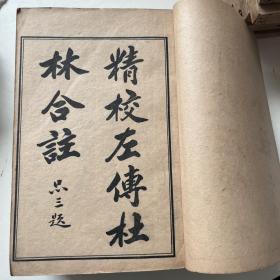 精校左傳杜
林合註
三題